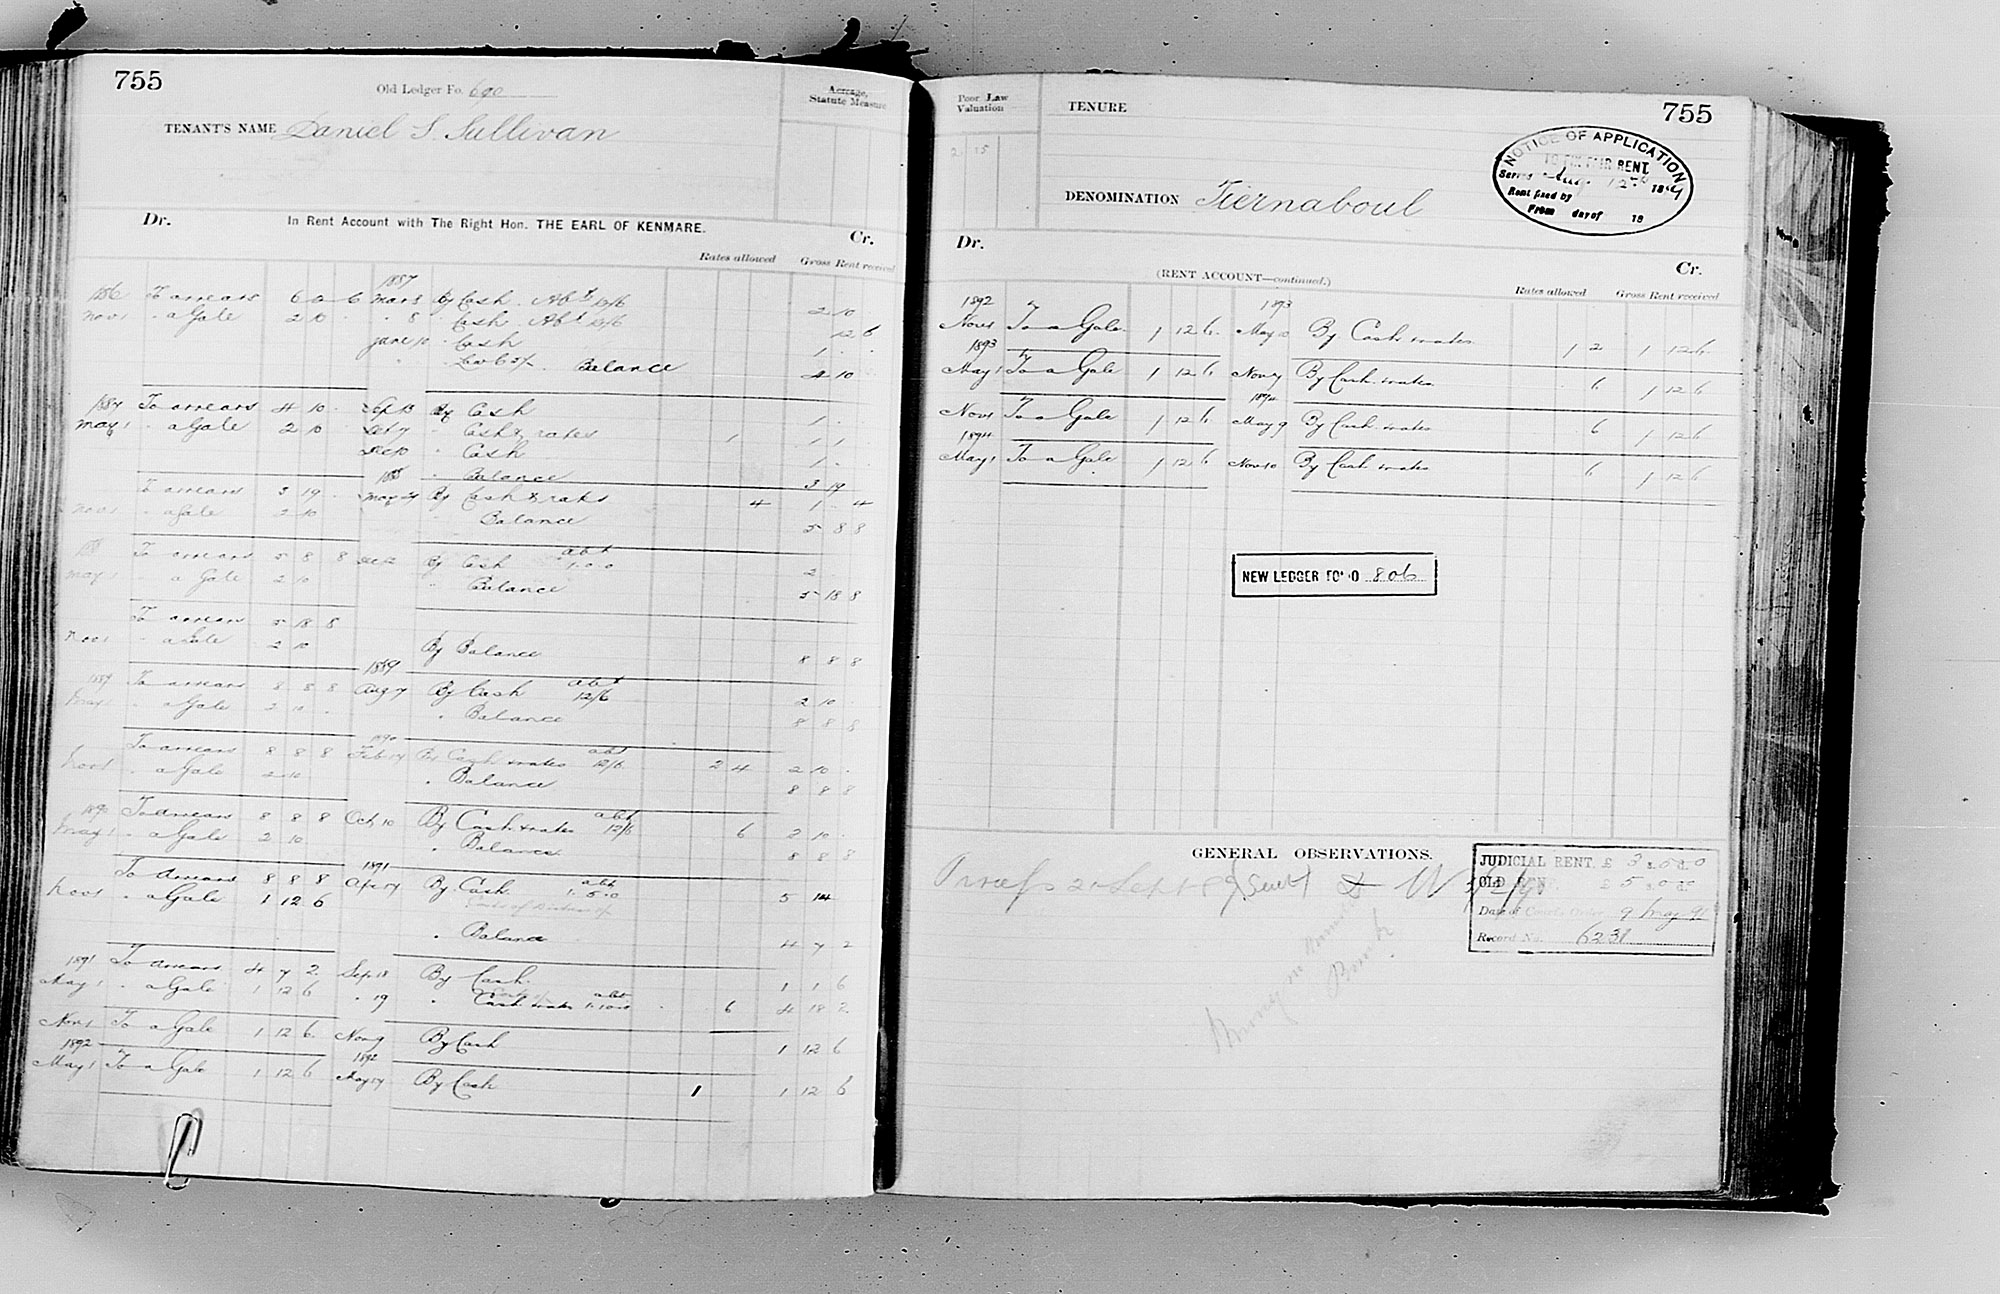 755
Old Ledger Fo. 690
Acreage, Statute Measure
TENANT'S NAME Daniel S. Sullivan
Dr. In Rent Account with The Right Hon. THE EARL OF KENMARE. Cr.
Rates allowed Gross Rent received
1887
1886 To arrears 6 2 6 Mar 8 By Cash Abt 12/6 2 10
Nov 1 " a Gale 2 10 " 8 " Cash Abt 12/6 12 6
June 10 " Cash 1 . .
Balance 4 10
1887 To arrears 4 10 . Sep 13 By Cash 1 . .
May 1 " a Gale 2 10 Oct 7 " Cash & rates 1 1 1 .
Dec 10 " Cash 1 . .
1888 " Balance 3 19
To arrears 3 19 . May 24 By Cash & rates 4 1 . 4
Nov 1 " a Gale 2 10 Balance 5 8 8
1888 To arrears 5 8 8 Dec 12 By Cash abt 1.0.0 2 .
May 1 " a Gale 2 10 " Balance 5 18 8
To arrears 5 18 8
Nov 1 " a Gale 2 10 By Balance 8 8 8
1889
1889 To arrears 8 8 8 Aug 7 By Cash abt 12/6 2 10
May 1 " a Gale 2 10 . " Balance 8 8 8
1890
To arrears 8 8 8 Feb 14 By Cash & rates abt 12/6 2 4 2 10 .
Nov 1 " a Gale 2 10 " Balance 8 8 8
1890 To arrears 8 8 8 Oct 10 By Cash & rates abt 12/6 6 2 10 .
May 1 " a Gale 2 10 " Balance 8 8 8
1891
To arrears 8 8 8 Apr 14 By Cash abt 1.5.0 5 14
Nov 1 " a Gale 1 12 6
" Balance 4 7 2
1891 To arrears 4 7 2 Sep 18 By Cash 1 1 6
May 1 " a Gale 1 12 6 " 19 " Cash & rates abt 6 4 18 2
Nov 1 To a Gale 1 12 6 Nov 9 By Cash 1 12 6
1892 1892
May 1 To a Gale 1 12 6 May 14 By Cash 1 1 12 6
Poor Law Valuation
2 15
TENURE
755
NOTICE OF APPLICATION
TO FIX FAIR RENT.
Served Aug 12th 1889
Rent fixed by
From day of 18
DENOMINATION Tiernaboul
Dr. (RENT ACCOUNT—continued.) Cr.
Rates allowed Gross Rent received
1892 1893
Nov 1 To a Gale 1 12 6 May 10 By Cash & rates 1 2 1 12 6
1893
May 1 To a Gale 1 12 6 Nov 7 By Cash & rates 6 1 12 6
1894
Nov 1 To a Gale 1 12 6 May 9 By Cash & rates 6 1 12 6
1894
May 1 To a Gale 1 12 6 Nov 10 By Cash & rates 6 1 12 6
NEW LEDGER FOLIO 806
GENERAL OBSERVATIONS.
JUDICIAL RENT. £ 3 5 0
OLD RENT £ 5 0 0
Date of Court's Order 9 May 91
Record No. 6231